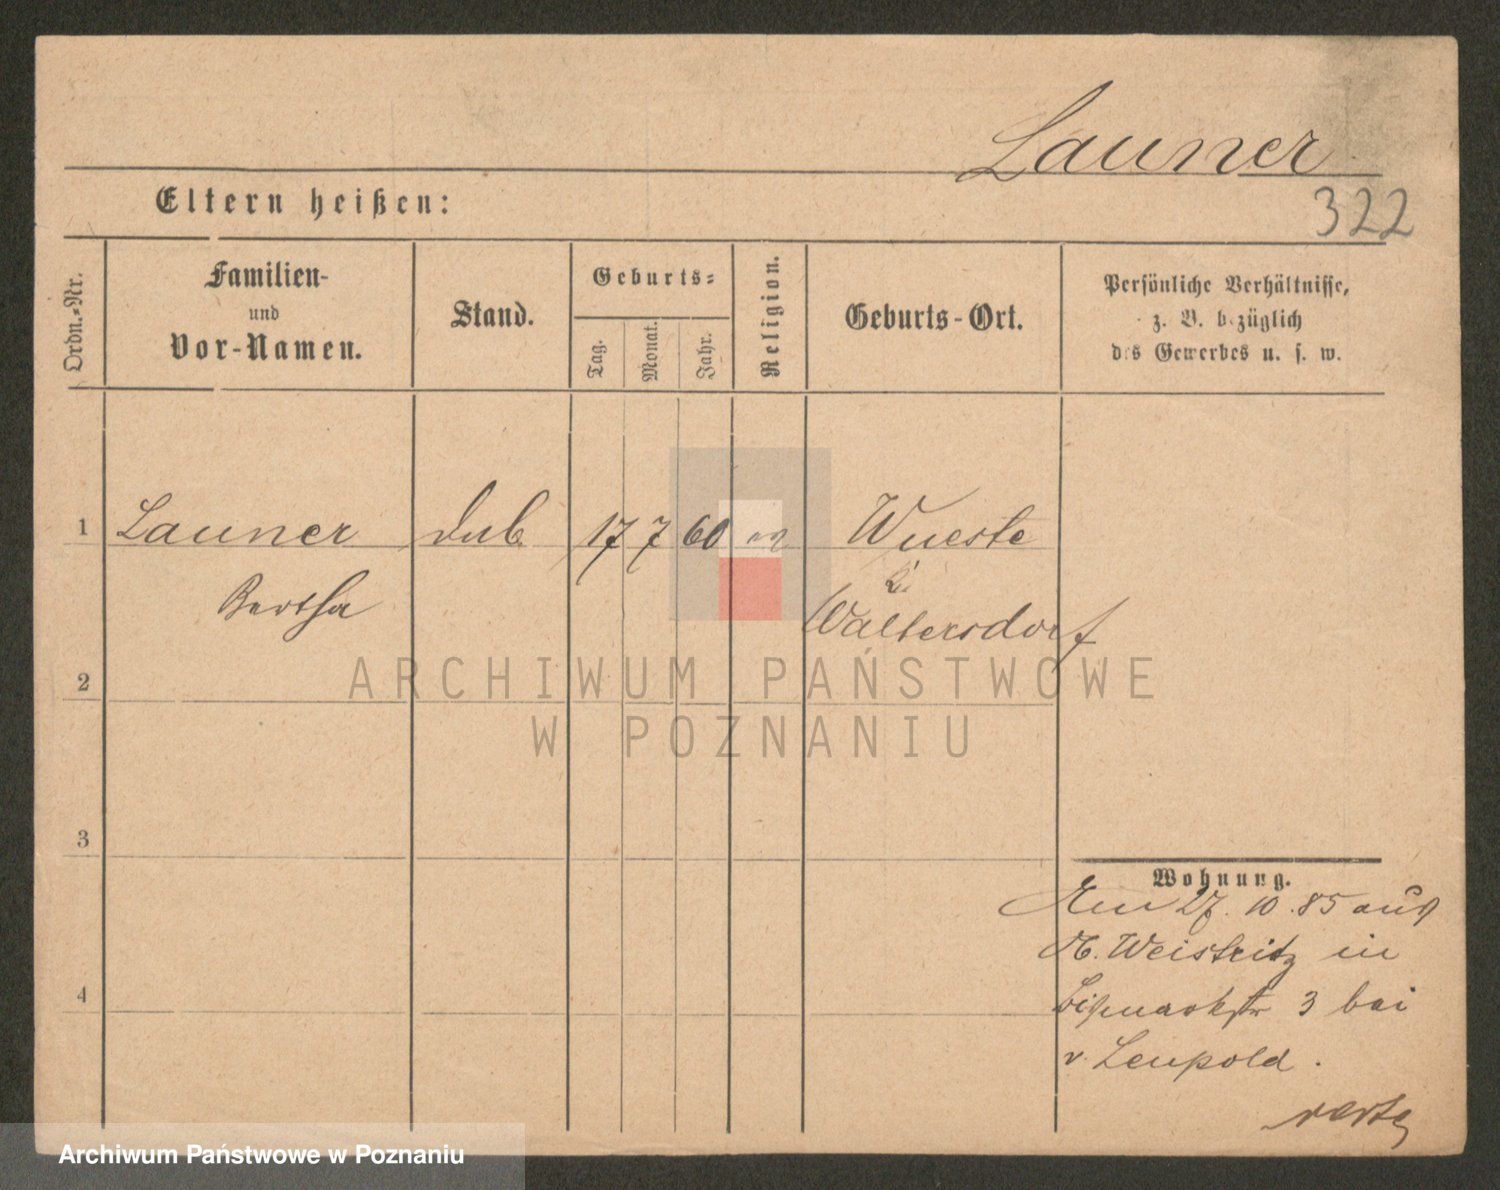 Launer
322
Eltern heißen:
Ordn.-Nr.
Familien-
und
Vor-Namen.
Stand.
Geburts-
Tag.
Monat.
Jahr.
Religion.
Geburts-Ort.
Persönliche Verhältnisse,
z. B. bezüglich
des Gewerbes u. s. w.
1 Launer 17 7 60 Wueste
Bertha
Waltersdorf
2
3
4
Wohnung.
Am 27. 10. 85 aus
Weistritz in
Bismarkstr 3 bei
v. Leupold.
verte
ARCHIWUM PAŃSTWOWE
W POZNANIU
Archiwum Państwowe w Poznaniu